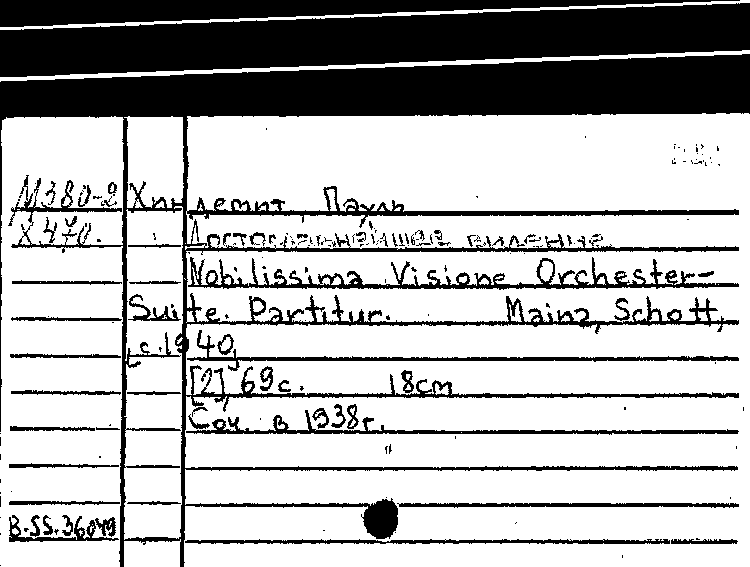 М380-2 Хиндемит, Пауль
Х470. Достославнейшее видение
Nobilissima Visione. Orchester-
Suite. Partitur. Mainz, Schott,
[c.1940]
[2], 69c. 18cm
Соч. в 1938г.
B.SS.36049